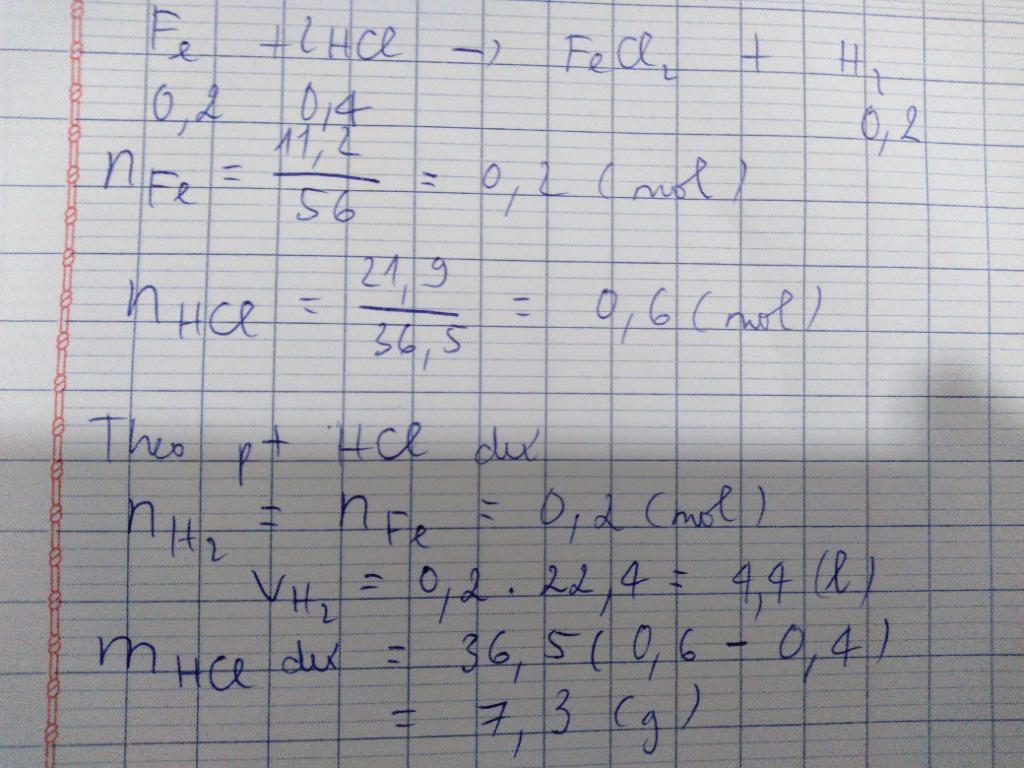 Fe + 2HCl → FeCl₂ + H₂
0,2 0,4 0,2
n_Fe = 11,2/56 = 0,2 (mol)
n_HCl = 21,9/36,5 = 0,6 (mol)
Theo pt HCl dư
n_H₂ = n_Fe = 0,2 (mol)
V_H₂ = 0,2 . 22,4 = 4,4 (l)
m_HCl dư = 36,5 (0,6 - 0,4)
= 7,3 (g)